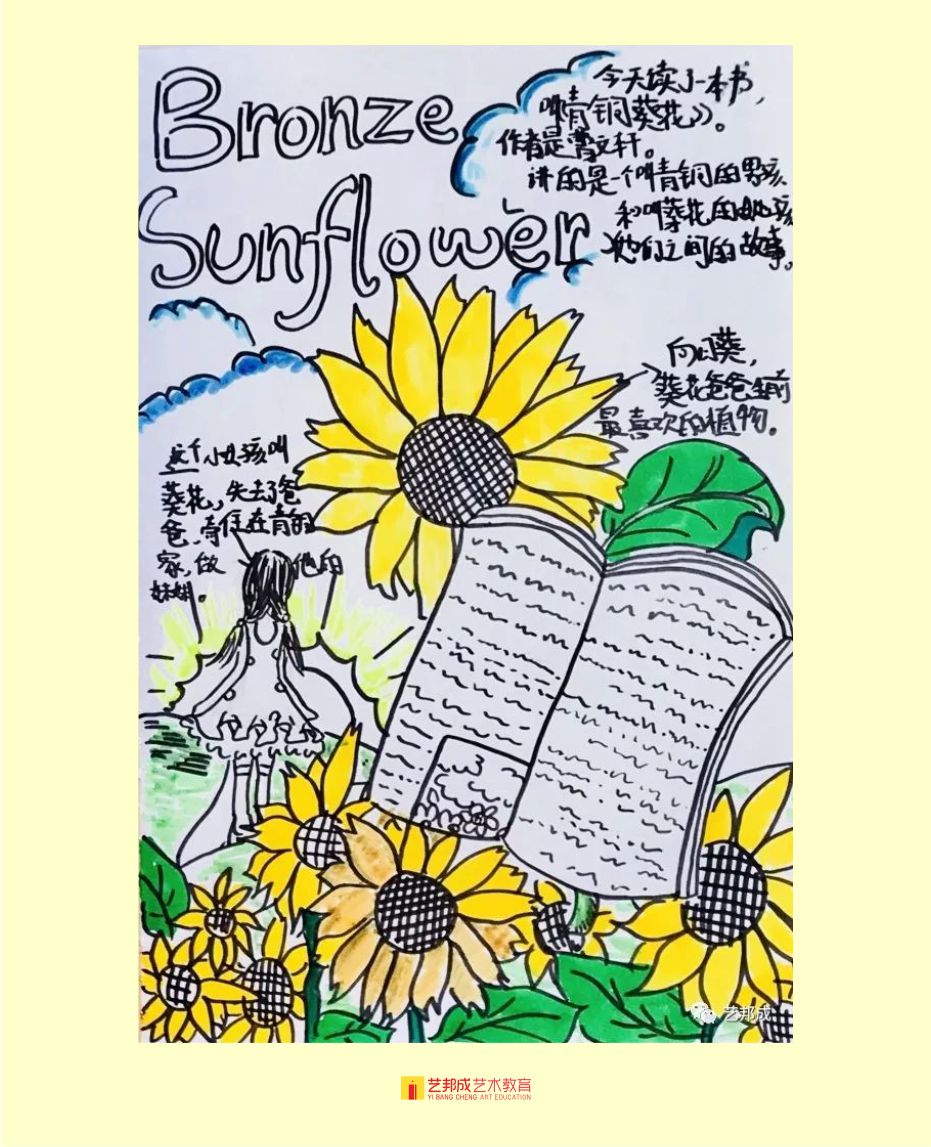 Bronze
Sunflower
今天读了一本书,
叫青铜葵花》。
作者是曹文轩。
讲的是一个叫青铜的男孩
和叫葵花的女孩
他们之间的故事。
向日葵,
葵花爸爸生前
最喜欢的植物。
这个小女孩叫
葵花,失去了爸
爸,寄住在青铜
家,做他的
妹妹。
艺邦成
艺邦成艺术教育
YI BANG CHENG ART EDUCATION